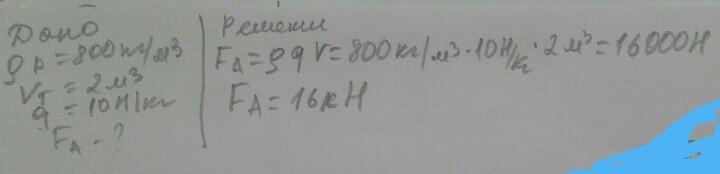 Дано
ρр = 800 кг/м³
Vт = 2 м³
g = 10Н/кг
FA - ?
Решение
FA = ρgV = 800 кг/м³ · 10Н/кг · 2 м³ = 16000Н
FA = 16кН